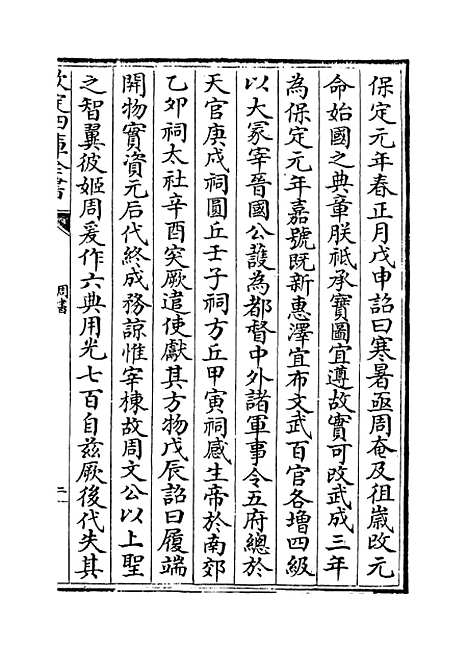 保定元年春正月戊申詔曰寒暑亟周奄及徂歲改元
命始國之典章朕祗承寶圖宜遵故實可改武成三年
為保定元年嘉號既新惠澤宜布文武百官各增四級
以大冢宰晉國公護為都督中外諸軍事令五府總於
天官庚戌祠圓丘壬子祠方丘甲寅祠感生帝於南郊
乙夘祠太社辛酉突厥遣使獻其方物戊辰詔曰履端
開物實資元后代終成務諒惟宰棟故周文公以上聖
之智翼彼姬周爰作六典用光七百自兹厥後代失其
欽定四庫全書
周書
二